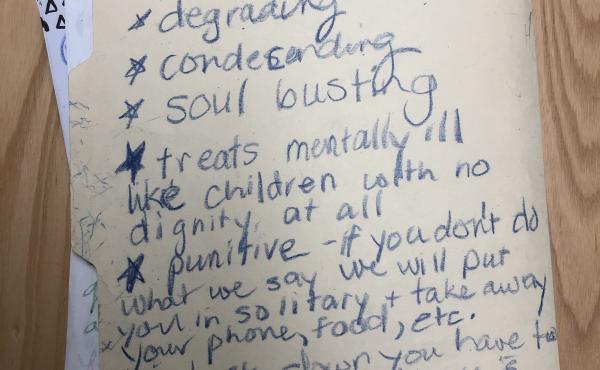 * degrading
* condecending
* soul busting
* treats mentally ill
like children with no
dignity at all
* punitive - if you don't do
what we say we will put
you in solitary + take away
your phone, food, etc.
down you have to